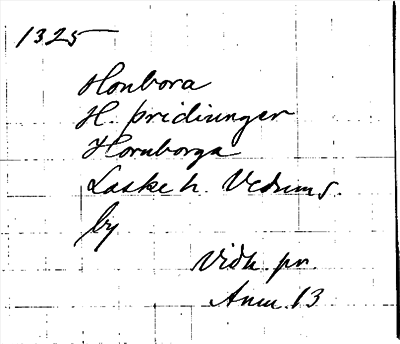 1325
Honbora
H. þridiunger
Hornborga
Laske h. Vedums
by
Vidh pr.
Anm. 13